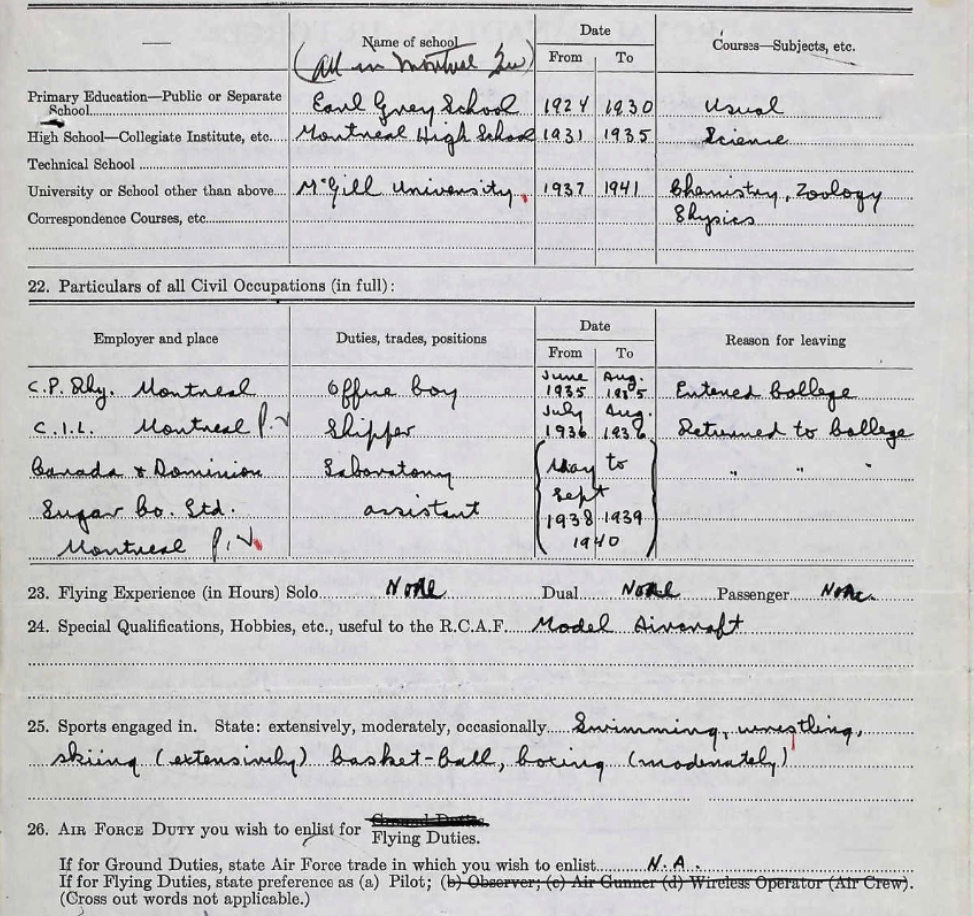 Name of school
Date
Courses—Subjects, etc.
(All in Montreal Que)
From To
Primary Education—Public or Separate
School Earl Grey School 1924 1930 Usual
High School—Collegiate Institute, etc. Montreal High School 1931 1935 Science
Technical School
University or School other than above McGill University 1937 1941 Chemistry, Zoology
Correspondence Courses, etc. Physics
22. Particulars of all Civil Occupations (in full):
Date
Employer and place Duties, trades, positions Reason for leaving
From To
C.P. Rly. Montreal Office boy June 1935 Aug. 1935 Entered College
C.I.L. Montreal P.Q. Shipper July 1936 Aug. 1936 Returned to College
Canada & Dominion Laboratory May to " " "
Sugar Co. Ltd. assistant Sept 1938 1939
Montreal P.Q. 1940
23. Flying Experience (in Hours) Solo None Dual None Passenger None
24. Special Qualifications, Hobbies, etc., useful to the R.C.A.F. Model Aircraft
25. Sports engaged in. State: extensively, moderately, occasionally Swimming, wrestling,
skiing (extensively) basket-ball, boxing (moderately)
26. AIR FORCE DUTY you wish to enlist for Ground Duties
Flying Duties.
If for Ground Duties, state Air Force trade in which you wish to enlist N.A.
If for Flying Duties, state preference as (a) Pilot; (b) Observer; (c) Air Gunner (d) Wireless Operator (Air Crew).
(Cross out words not applicable.)